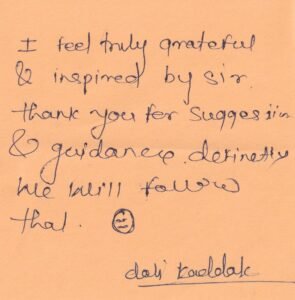 I feel truly grateful
& inspired by sir.
thank you for suggestiin
& guidance. definetly
we will follow
that.